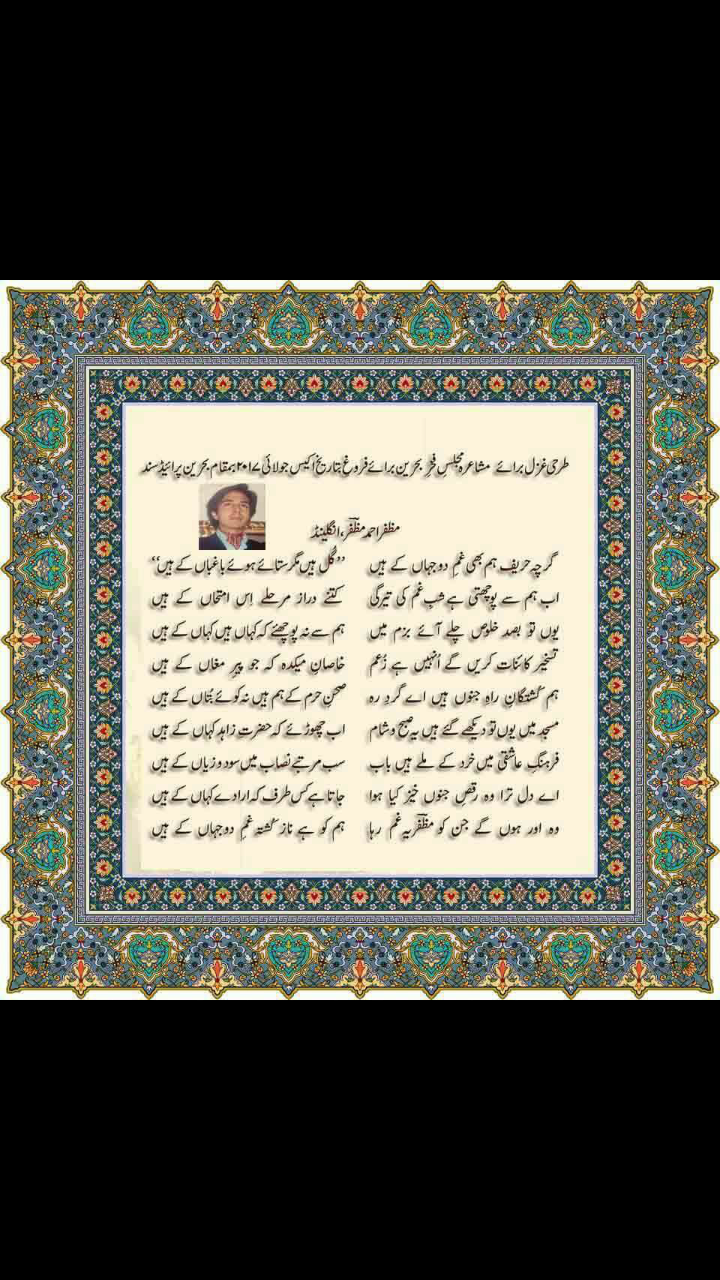 طرحی غزل برائے مشاعرہ مجلسِ فخرِ بحرین برائے فروغ بتاریخ اکیس جولائی ۲۰۱۷ بمقام بحرین پرائیڈ سند
مظفر احمد مظفرؔ، انگلینڈ
گرچہ حریف ہم بھی غمِ دو جہاں کے ہیں ’’گل ہیں مگر ستائے ہوئے باغباں کے ہیں‘‘
اب ہم سے پوچھتی ہے شبِ غم کی تیرگی کتنے دراز مرحلے اِس امتحاں کے ہیں
یوں تو بصد خلوص چلے آئے بزم میں ہم سے نہ پوچھئے کہ کہاں ہیں کہاں کے ہیں
تسخیرِ کائنات کریں گے اُنہیں ہے زعم خاصانِ میکدہ کہ جو پیرِ مغاں کے ہیں
ہم کشتگانِ راہِ جنوں ہیں اے گردِ رہ صحنِ حرم کے ہم ہیں نہ کوئے بتاں کے ہیں
مسجد میں یوں تو دیکھے گئے ہیں یہ صبح و شام اب چھوڑئے کہ حضرتِ زاہد کہاں کے ہیں
فرہنگِ عاشقی میں خرد کے ملے ہیں باب سب مرتبے نصاب میں سود و زیاں کے ہیں
اے دل ترا وہ رقصِ جنوں خیز کیا ہوا جاتا ہے کس طرف کہ ارادے کہاں کے ہیں
وہ اور ہوں گے جن کو مظفرؔ یہ غم رہا ہم کو ہے ناز کشتہ غمِ دو جہاں کے ہیں